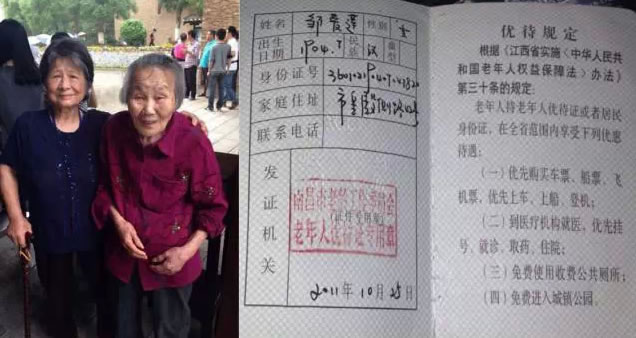 姓名 邹爱莲 性别 女
出生日期 1904.7 民族 汉 血型
身份证号
家庭住址
联系电话
发证机关
南昌市老龄工作委员会
(证件专用章)
老年人优待证专用章
2011年10月25日
优待规定
根据《江西省实施〈中华人民共
和国老年人权益保障法〉办法》
第三十条的规定:
老年人持老年人优待证或者居民
身份证,在全省范围内享受下列优惠
待遇:
(一)优先购买车票、船票、飞
机票,优先上车、上船、登机;
(二)到医疗机构就医,优先挂
号、就诊、取药、住院;
(三)免费使用收费公共厕所;
(四)免费进入城镇公园。